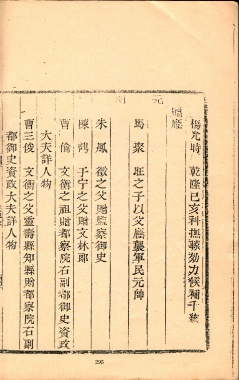 楊允時 乾隆己亥科撫標効力候補千總
廕
馬聚 旺之子以父廕襲軍民元帥
朱鳳 徵之父贈監察御史
陳 于宁之父贈文林郎
曹倫 文衡之祖贈都察院右副都御史資政
大夫詳人物
曹三俊 文衡之父靈壽縣知縣贈都察院右副
都御史資政大夫詳人物
295